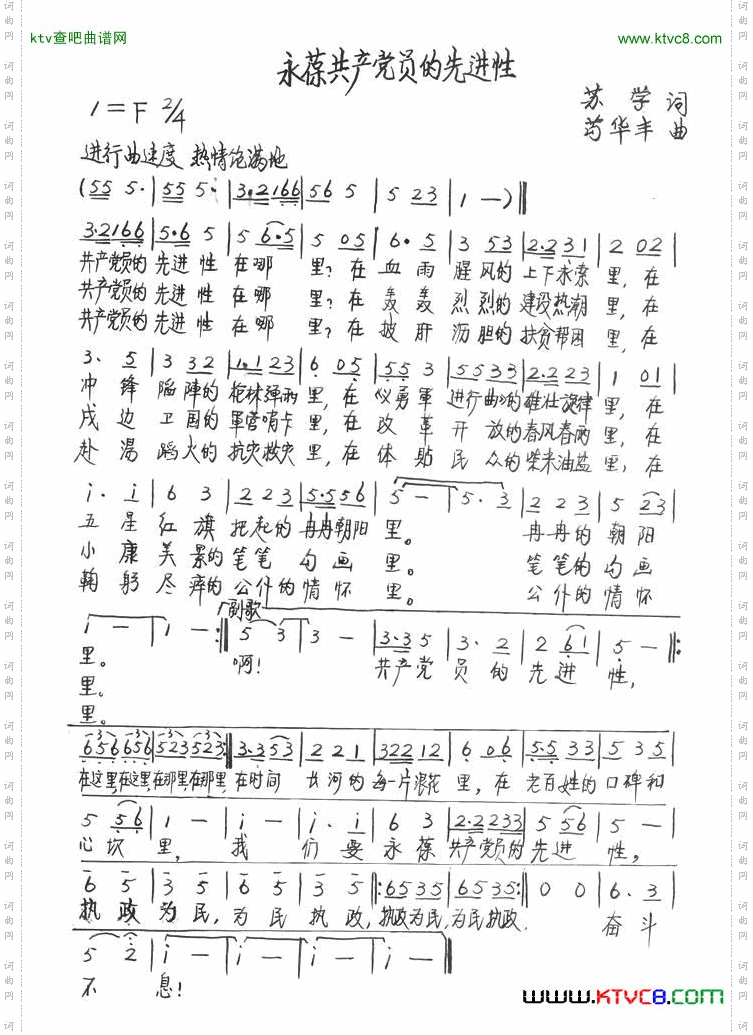 ktv查吧曲谱网
www.ktvc8.com
永葆共产党员的先进性
1=F 2/4
苏 学 词
苟华丰 曲
进行曲速度 热情饱满地
(55 5· | 55 5· | 3·2166 | 56 5 | 5 23 | 1 — )‖
3·2166 | 5·6 5 | 5 6·5 | 5 05 | 6· 5 | 3 53 | 2·231 | 2 02 |
共产党员的 先进 性 在哪 里? 在 血 雨 腥 风的 上下求索 里, 在
共产党员的 先进 性 在哪 里? 在 轰 轰 烈 烈的 建设热潮 里, 在
共产党员的 先进 性 在哪 里? 在 披 肝 沥 胆的 扶贫帮困 里, 在
3· 5 | 3 32 | 1·123 | 6 05 | 55 3 | 5533 | 2·223 | 1 01 |
冲 锋 陷 陣的 枪林弹雨 里, 在 《义勇軍 进行曲》的 雄壮旋律 里, 在
戍 边 卫 国的 軍营哨卡 里, 在 改 革 开 放的 春风春雨 里, 在
赴 湯 蹈 火的 抗灾救灾 里, 在 体 貼 民 众的 柴米油盐 里, 在
i· i | 6 3 | 2 23 | 5·556 | 5 — | 5· 3 | 2 23 | 5 23 |
五 星 红 旗 托起的 冉冉朝阳 里。 冉冉的 朝阳
小 康 美 景的 笔笔 勾画 里。 笔笔的 勾画
鞠 躬 尽 瘁的 公仆的 情怀 里。 公仆的 情怀
副歌
i — | i — :‖ 5 3 | 3 — | 3·3 5 | 3· 2 | 2 61 | 5 — ‖:
里。 啊! 共产党 员 的 先进 性,
里。
里。
656 656 | 523 523 :‖ 3·353 | 2 21 | 322 12 | 6 06 | 5·5 33 | 5 35 |
在这里,在这里,在那里,在那里, 在时间 长河的 每一片浪花 里, 在 老百姓的 口碑和
5 56 | 1 — | i — | i· i | 6 3 | 2·2233 | 5 56 | 5 — |
心坎 里, 我 们 要 永 葆 共产党员的 先进 性。
6 5 | 3 5 | 6 5 | 3 5 |: 6535 | 6535 :| 0 0 | 6· 3 |
执 政 为 民, 为 民 执 政, 执政为民, 为民执政. 奋 斗
5 2 | i — | i — | i — | i — ‖
不 息!
www.KTVC8.com